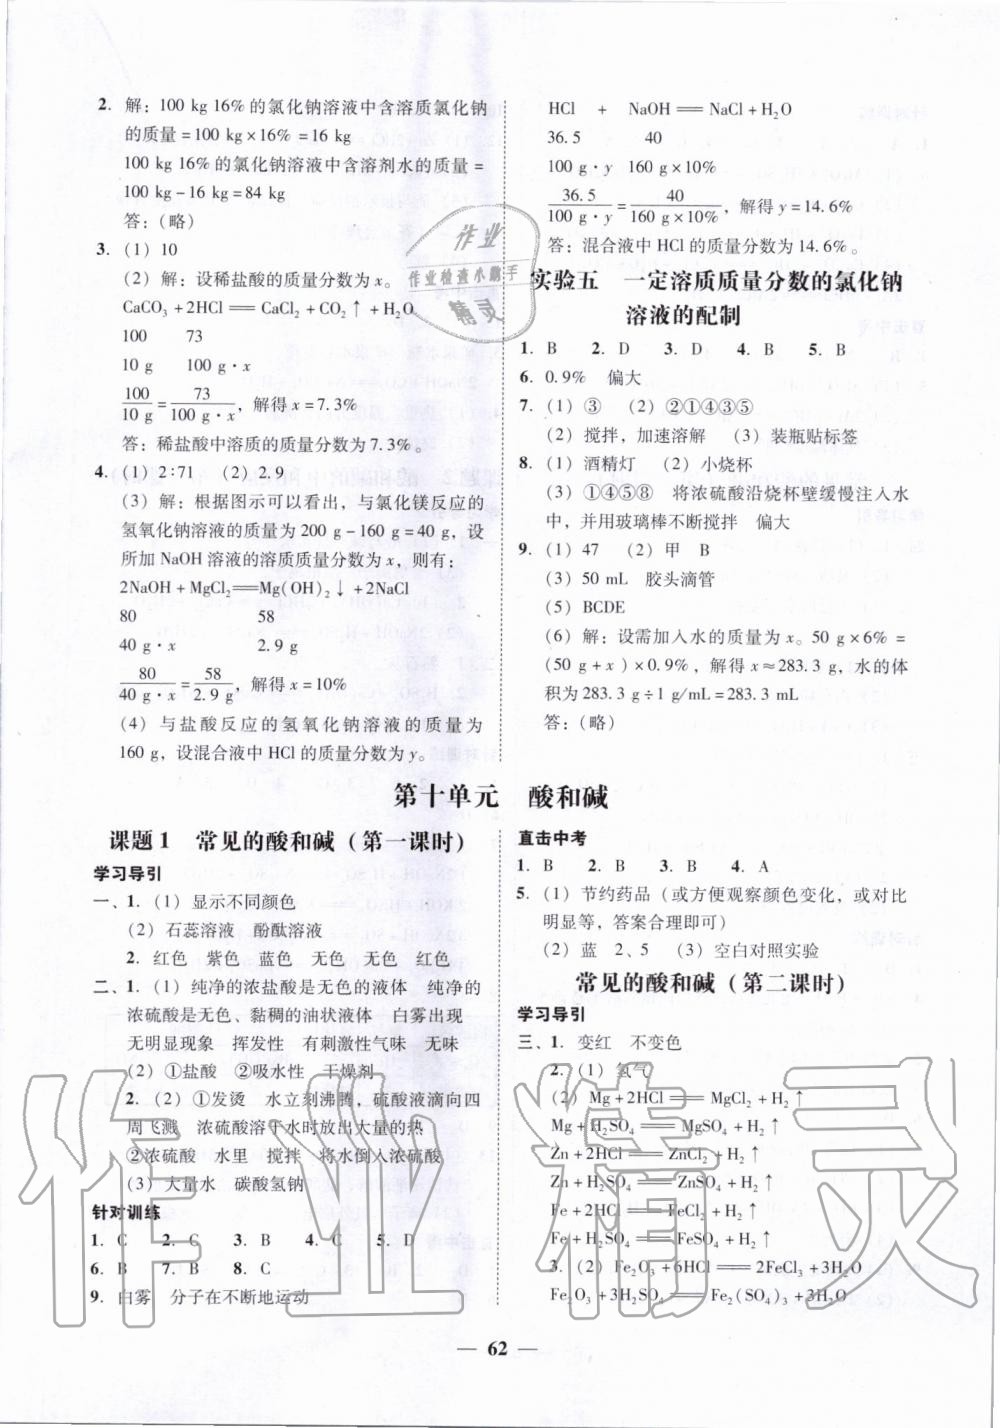 2. 解:100 kg 16%的氯化钠溶液中含溶质氯化钠
的质量=100 kg×16%=16 kg
100 kg 16%的氯化钠溶液中含溶剂水的质量=
100 kg-16 kg=84 kg
答:(略)
3. (1) 10
(2) 解:设稀盐酸的质量分数为 x。
CaCO₃+2HCl══CaCl₂+CO₂↑+H₂O
100 73
10 g 100 g·x
100/10 g=73/100 g·x,解得 x=7.3%
答:稀盐酸中溶质的质量分数为7.3%。
4. (1) 2:71 (2) 2.9
(3) 解:根据图示可以看出,与氯化镁反应的
氢氧化钠溶液的质量为 200 g-160 g=40 g,设
所加 NaOH 溶液的溶质质量分数为 x,则有:
2NaOH+MgCl₂══Mg(OH)₂↓+2NaCl
80 58
40 g·x 2.9 g
80/40 g·x=58/2.9 g,解得 x=10%
(4) 与盐酸反应的氢氧化钠溶液的质量为
160 g,设混合液中 HCl 的质量分数为 y。
HCl + NaOH══NaCl+H₂O
36.5 40
100 g·y 160 g×10%
36.5/100 g·y=40/160 g×10%,解得 y=14.6%
答:混合液中 HCl 的质量分数为 14.6%。
实验五 一定溶质质量分数的氯化钠
溶液的配制
1. B 2. D 3. D 4. B 5. B
6. 0.9% 偏大
7. (1) ③ (2) ②①④③⑤
(2) 搅拌,加速溶解 (3) 装瓶贴标签
8. (1) 酒精灯 (2) 小烧杯
(3) ①④⑤⑧ 将浓硫酸沿烧杯壁缓慢注入水
中,并用玻璃棒不断搅拌 偏大
9. (1) 47 (2) 甲 B
(3) 50 mL 胶头滴管
(5) BCDE
(6) 解:设需加入水的质量为 x。50 g×6%=
(50 g+x)×0.9%,解得 x≈283.3 g,水的体
积为 283.3 g÷1 g/mL=283.3 mL
答:(略)
第十单元 酸和碱
课题1 常见的酸和碱(第一课时)
学习导引
一、1. (1) 显示不同颜色
(2) 石蕊溶液 酚酞溶液
2. 红色 紫色 蓝色 无色 无色 红色
二、1. (1) 纯净的浓盐酸是无色的液体 纯净的
浓硫酸是无色、黏稠的油状液体 白雾出现
无明显现象 挥发性 有刺激性气味 无味
(2) ①盐酸 ②吸水性 干燥剂
2. (2) ①发烫 水立刻沸腾,硫酸液滴向四
周飞溅 浓硫酸溶于水时放出大量的热
②浓硫酸 水里 搅拌 将水倒入浓硫酸
(3) 大量水 碳酸氢钠
针对训练
1. C 2. C 3. B 4. C 5. D
6. B 7. B 8. C
9. 白雾 分子在不断地运动
直击中考
1. B 2. B 3. B 4. A
5. (1) 节约药品(或方便观察颜色变化,或对比
明显等,答案合理即可)
(2) 蓝 2、5 (3) 空白对照实验
常见的酸和碱(第二课时)
学习导引
三、1. 变红 不变色
2. (1) 氢气
(2) Mg+2HCl══MgCl₂+H₂↑
Mg+H₂SO₄══MgSO₄+H₂↑
Zn+2HCl══ZnCl₂+H₂↑
Zn+H₂SO₄══ZnSO₄+H₂↑
Fe+2HCl══FeCl₂+H₂↑
Fe+H₂SO₄══FeSO₄+H₂↑
3. (2) Fe₂O₃+6HCl══2FeCl₃+3H₂O
Fe₂O₃+3H₂SO₄══Fe₂(SO₄)₃+3H₂O
— 62 —
作业
作业检查小助手
精灵
作业精灵